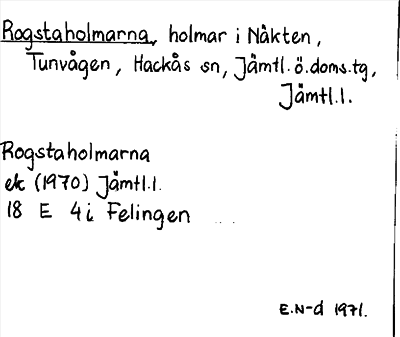 Rogstaholmarna, holmar i Näkten,
Tunvågen, Hackås sn, Jämtl. ö. doms.tg,
Jämtl.l.
Rogstaholmarna
ek (1970) Jämtl.l.
18 E 4i Felingen
E.N-d 1971.